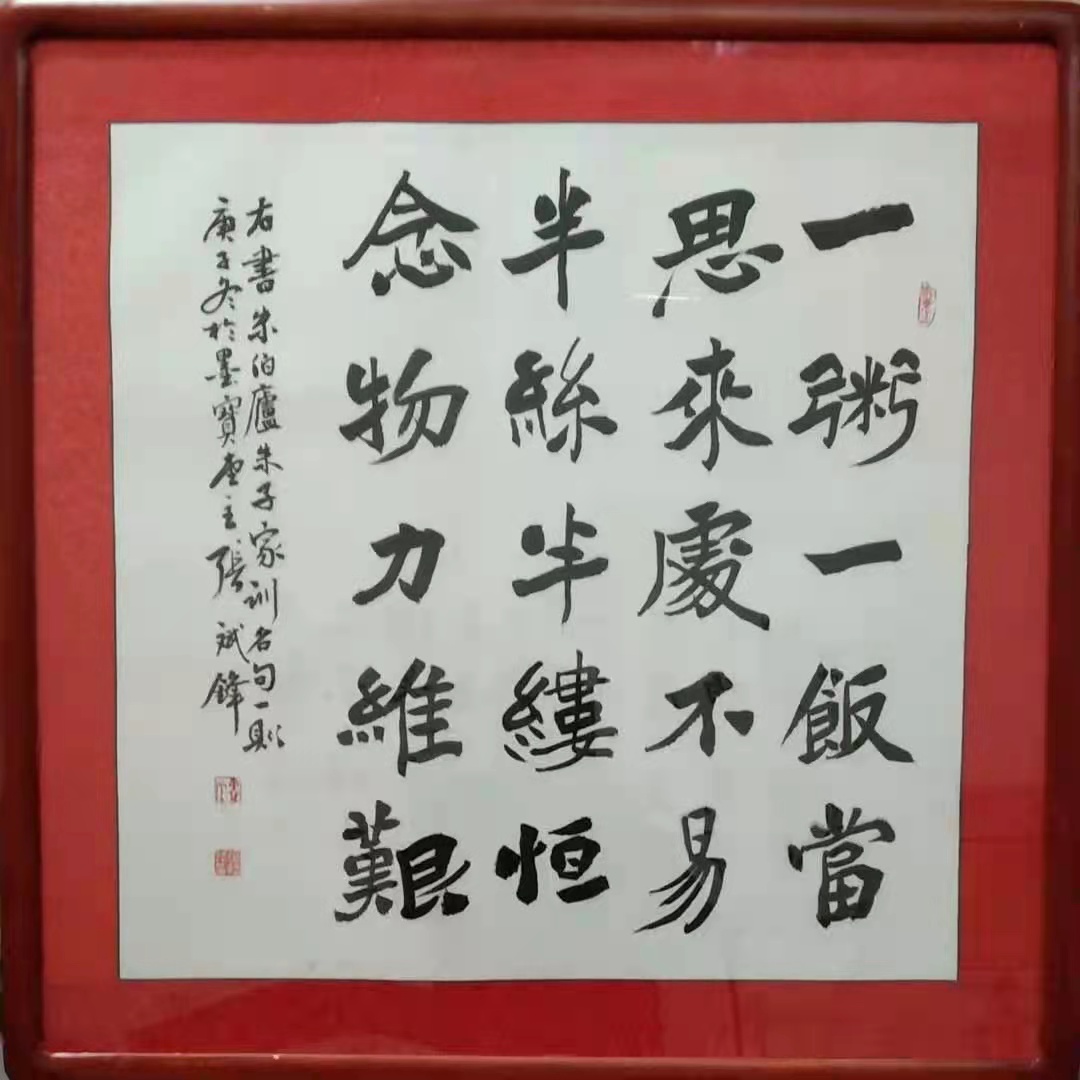 一粥一飯當
思來處不易
半絲半縷恒
念物力維艱
右書朱伯廬朱子家訓名句一則
庚子冬於墨寶堂主張斌鋒